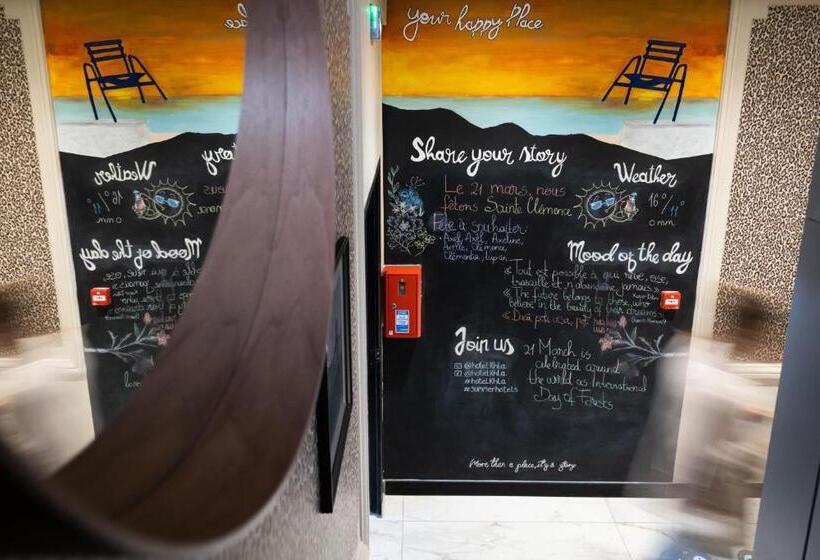 your happy Place
Share your story
Le 21 mars, nous
fêtons Sainte Clémence
Fête à souhaiter:
Axel, Axël, Axeline,
Axelle, Clémence,
Clémentia, Lupicin
Weather
16°/11°
0 mm
Mood of the day
"Tout est possible à qui rêve, ose,
travaille et n'abandonne jamais"
"The future belongs to those who
believe in the beauty of their dreams"
Join us
@hotelkhla
@hotelkhla
#hotelkhla
#summerhotels
21 March is
celebrated around
the world as International
Day of Forests
More than a place, it's a story